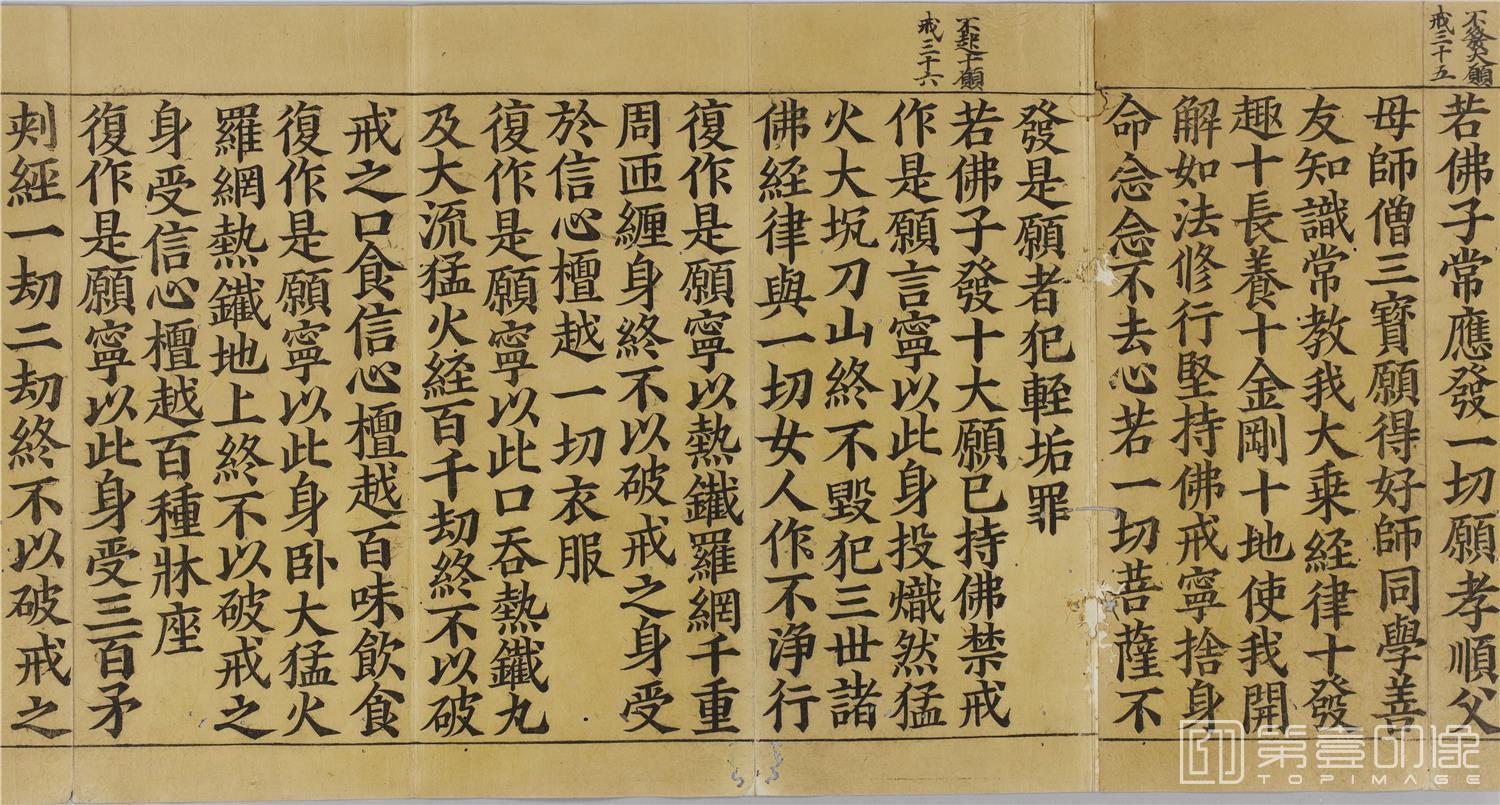 不發大願
戒三十五
若佛子常應發一切願孝順父
母師僧三寶願得好師同學善
友知識常教我大乗経律十發
趣十長養十金剛十地使我開
解如法修行堅持佛戒寧捨身
命念念不去心若一切菩薩不
發是願者犯輕垢罪
不起十願
戒三十六
若佛子發十大願已持佛禁戒
作是願言寧以此身投熾然猛
火大坑刀山終不毀犯三世諸
佛経律與一切女人作不淨行
復作是願寧以熱鐵羅網千重
周匝纏身終不以破戒之身受
於信心檀越一切衣服
復作是願寧以此口吞熱鐵丸
及大流猛火経百千劫終不以破
戒之口食信心檀越百味飲食
復作是願寧以此身卧大猛火
羅網熱鐵地上終不以破戒之
身受信心檀越百種牀座
復作是願寧以此身受三百矛
刾經一劫二劫終不以破戒之
第壹印像
TOPIMAGE